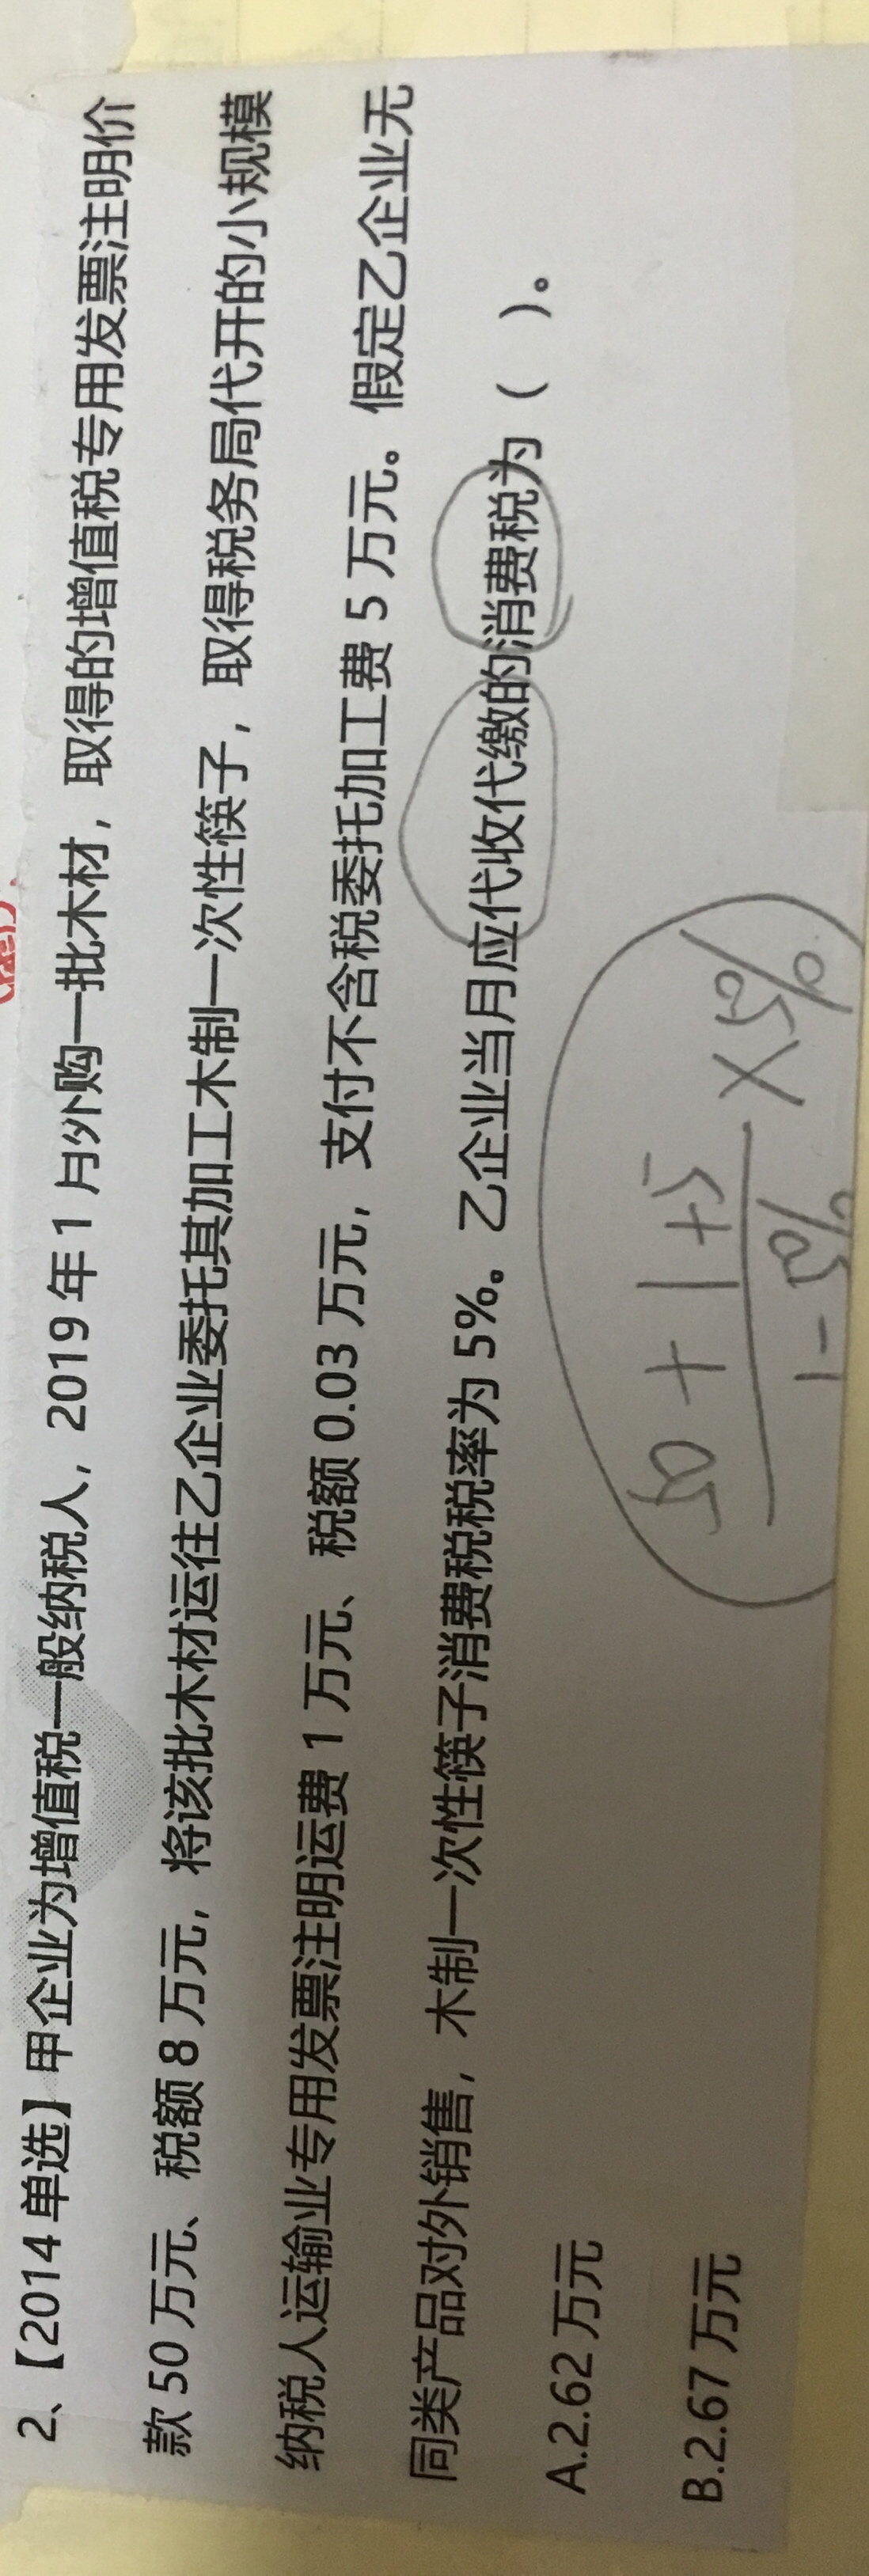 2、【2014 单选】甲企业为增值税一般纳税人，2019 年 1 月外购一批木材，取得的增值税专用发票注明价
款 50 万元、税额 8 万元，将该批木材运往乙企业委托其加工木制一次性筷子，取得税务局代开的小规模
纳税人运输业专用发票注明运费 1 万元、税额 0.03 万元，支付不含税委托加工费 5 万元。假定乙企业无
同类产品对外销售，木制一次性筷子消费税税率为 5%。乙企业当月应代收代缴的消费税为（ ）。
50 + 1 + 5
1 - 5%
× 5%
A.2.62 万元
B.2.67 万元